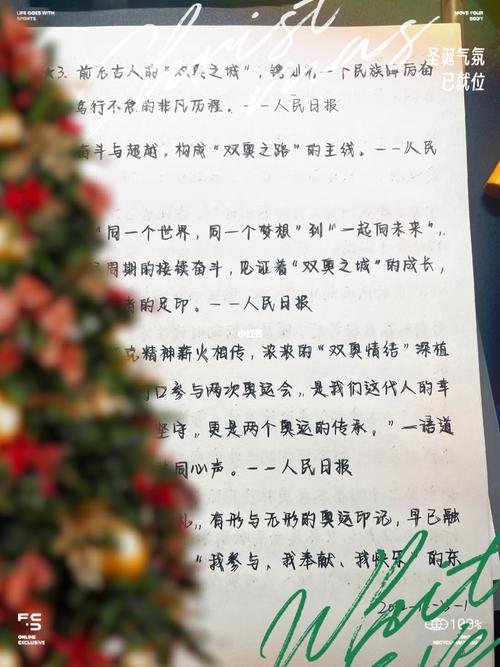 LIFE GOES WITH
SPORTS
MOVE YOUR
BODY
Christmas
圣诞气氛
已就位
3. 前无古人的“双奥之城”，镌刻着一个民族踔厉奋
笃行不怠的非凡历程。---人民日报
奋斗与超越，构成“双奥之路”的主线。---人民
“同一个世界，同一个梦想”到“一起向未来”，
周期的接续奋斗，见证着“双奥之城”的成长，
者的足印。---人民日报
小红书
克精神薪火相传，浓浓的“双奥情结”深植
口参与两次奥运会，是我们这代人的幸
坚守，更是两个奥运的传承。”一语道
同心声。---人民日报
，有形与无形的奥运印记，早已融
“我参与、我奉献、我快乐”的东
FSS
ONLINE
EXCLUSIVE
100%